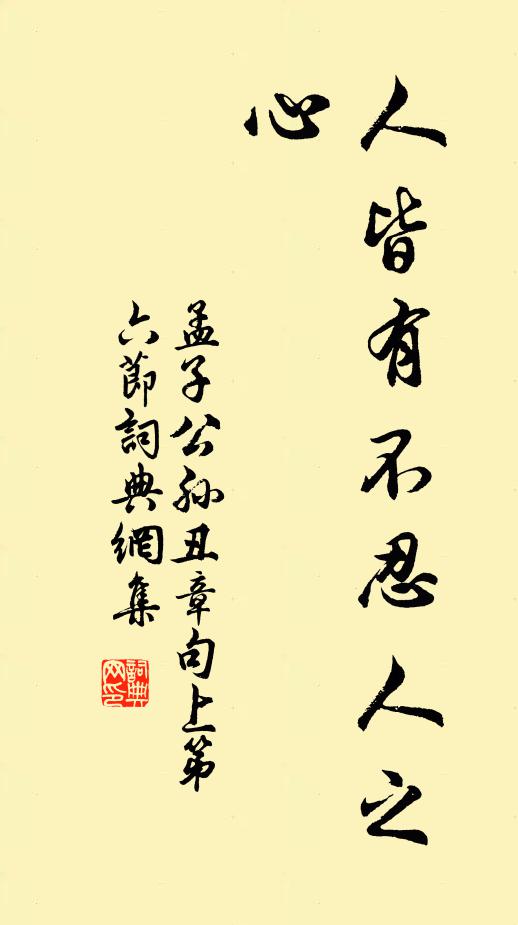 人皆有不忍人之
心
孟子公孙丑章句上第
六節詞典網集
詞典
网印